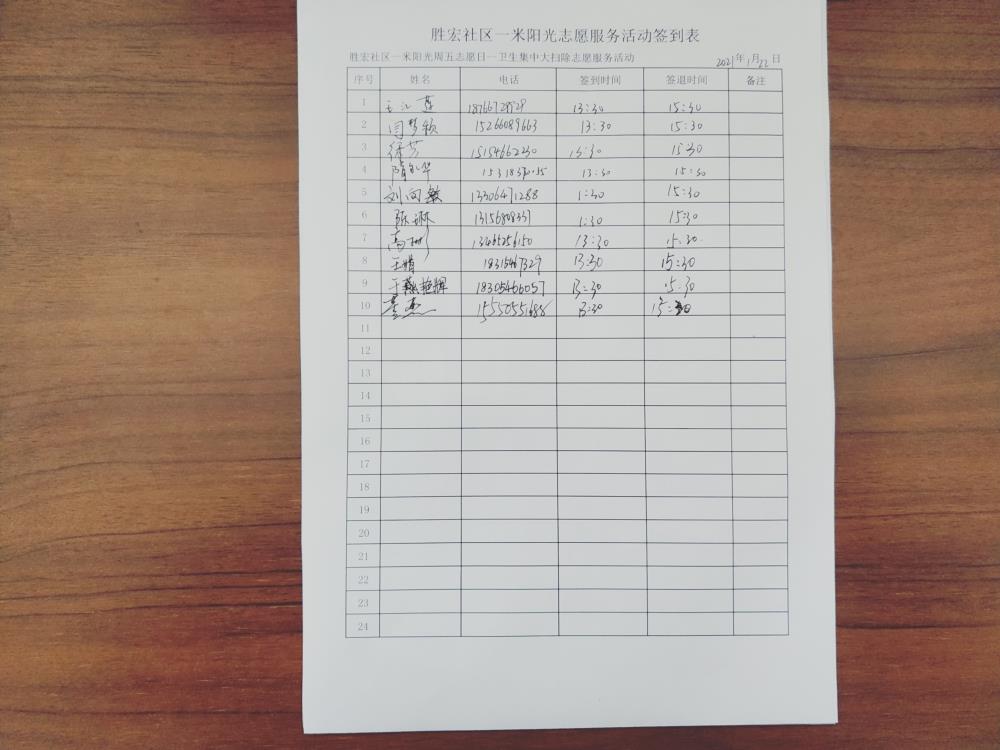 胜宏社区一米阳光志愿服务活动签到表
胜宏社区一米阳光周五志愿日—卫生集中大扫除志愿服务活动 2021年1月22日
序号 姓名 电话 签到时间 签退时间 备注
1 13:30 15:30
2 闫梦颖 15266089663 13:30 15:30
3 徐芳 15154662230 13:30 15:30
4 13:30 15:30
5 刘向敏 13306471288 1:30 15:30
6 陈琳 1:30 15:30
7 高彬 13465256150 13:30 15:30
8 王婧 18315467329 13:30 15:30
9 于艳辉 18305466057 13:30 15:30
10 15550551688 13:30 15:30
11
12
13
14
15
16
17
18
19
20
21
22
23
24